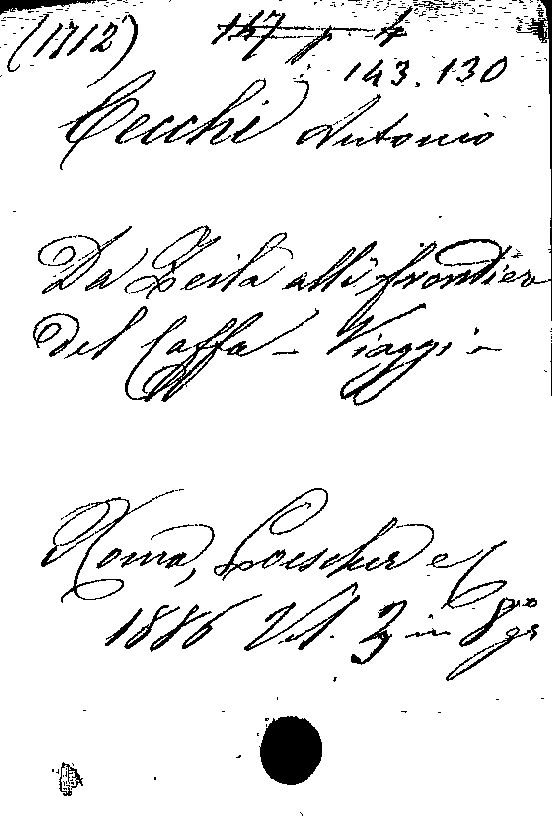 (1712) 147 p 4
143.130
Cecchi Antonio
Da Zeila alle frontier
del Caffa - Viaggi -
Roma, Loescher e C
1886 Vol. 3 in 8°